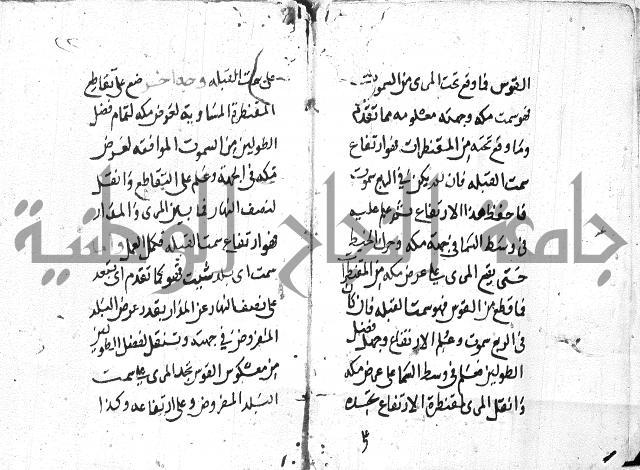 القوس فما وقع تحت المرى من السموت
فهو سمت مكه وجهته معلومه مما تقدم
وما وقع تحته من المقنطرات فهو ارتفاع
سمت القبله فان لم يكن في الربع سموت
فاحفظ هذا الارتفاع ثم علم عليه
في وسط السما في جهة مكه وحرك الخيط
حتى يقع المرى على عرض مكه من المقنطرات
فما قطع من القوس فهو سمت القبله فان كان
في الربع سموت وعلم الارتفاع وجهل فضل
الطولين فعلم في وسط السما على عرض مكه
وانقل المرى لمقنطرة الارتفاع تجده
على سمت القبله وضع على تقاطع
المقنطرة المساوية لعرض مكه لتمام فضل
الطولين من السموت الموافقه لعرض
مكه في الجهة وعلم على التقاطع وانقل
لنصف النهار فما بين المرى والمدار
فهو ارتفاع سمت القبله فكمل العمل
سمت اى بلد شيت فهو كما تقدم اى تبعد
على نصف النهار عن المدار بقدر عرض البلد
المفروض في جهته وتنقل لفضل الطولين
من معكوس القوس تجد المرى على سمت
البلد المفروض وعلى ارتفاعه وكذا
جامعة النجاح الوطنية